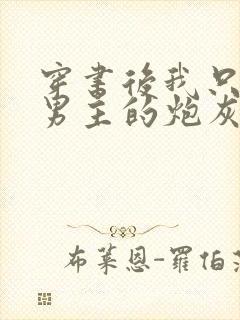 穿書後我只
男主的炮灰
布萊恩-羅伯